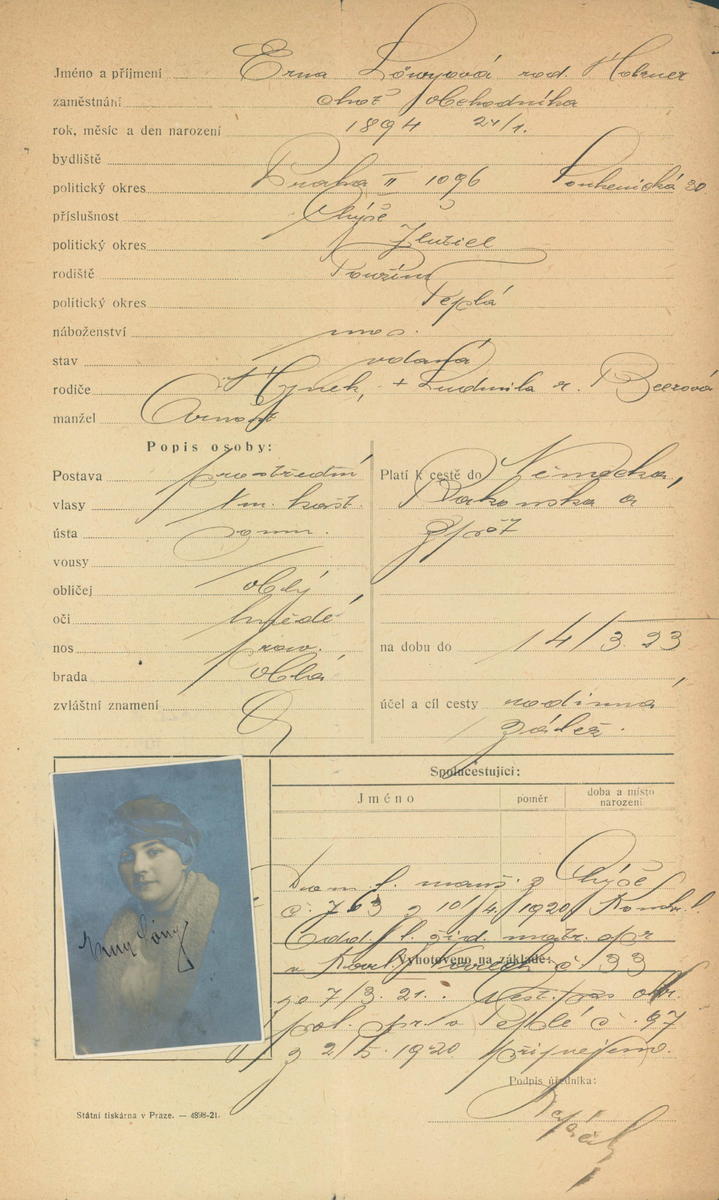 Jméno a příjmení Erna Löwyová roz. Holzner
zaměstnání choť obchodníka
rok, měsíc a den narození 1894 24/1.
bydliště
politický okres Praha II 1096
příslušnost Chýše
politický okres Žlutice
rodiště Toužim
politický okres Teplá
náboženství mos.
stav vdaná
rodiče Hynek, + Ludmila r. Beerová
manžel Arnošt
Popis osoby:
Postava prostřední
vlasy tm. kašt.
ústa soum.
vousy
obličej oblý
oči hnědé
nos prav.
brada oblá
zvláštní znamení
Platí k cestě do Německa,
Rakouska a
zpět
na dobu do 14/3. 23
účel a cíl cesty rodinná
zálež.
Spolucestující:
Jméno poměr doba a místo narození
Dom. l. manž. z Chýše
č. 763 z 10/4. 1920
Odd. l. žid. matr.
v Karl. Varech č. 33
Vyhotoveno na základě:
7/3. 21. Cest. pas okr.
pol. spr. v Teplé č. 97
z 2/5. 1920 připojeno.
Podpis úředníka:
Erny Löwy
Státní tiskárna v Praze. — 4898-21.